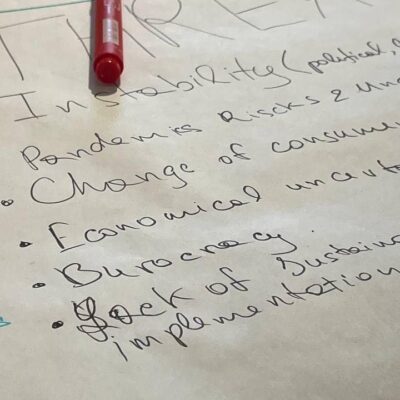 THREA
Instability (political,
Pandemics Risks & Un
• Change of consume
• Economical uncert
• Burocracy.
• Lack of Sustain
implementation